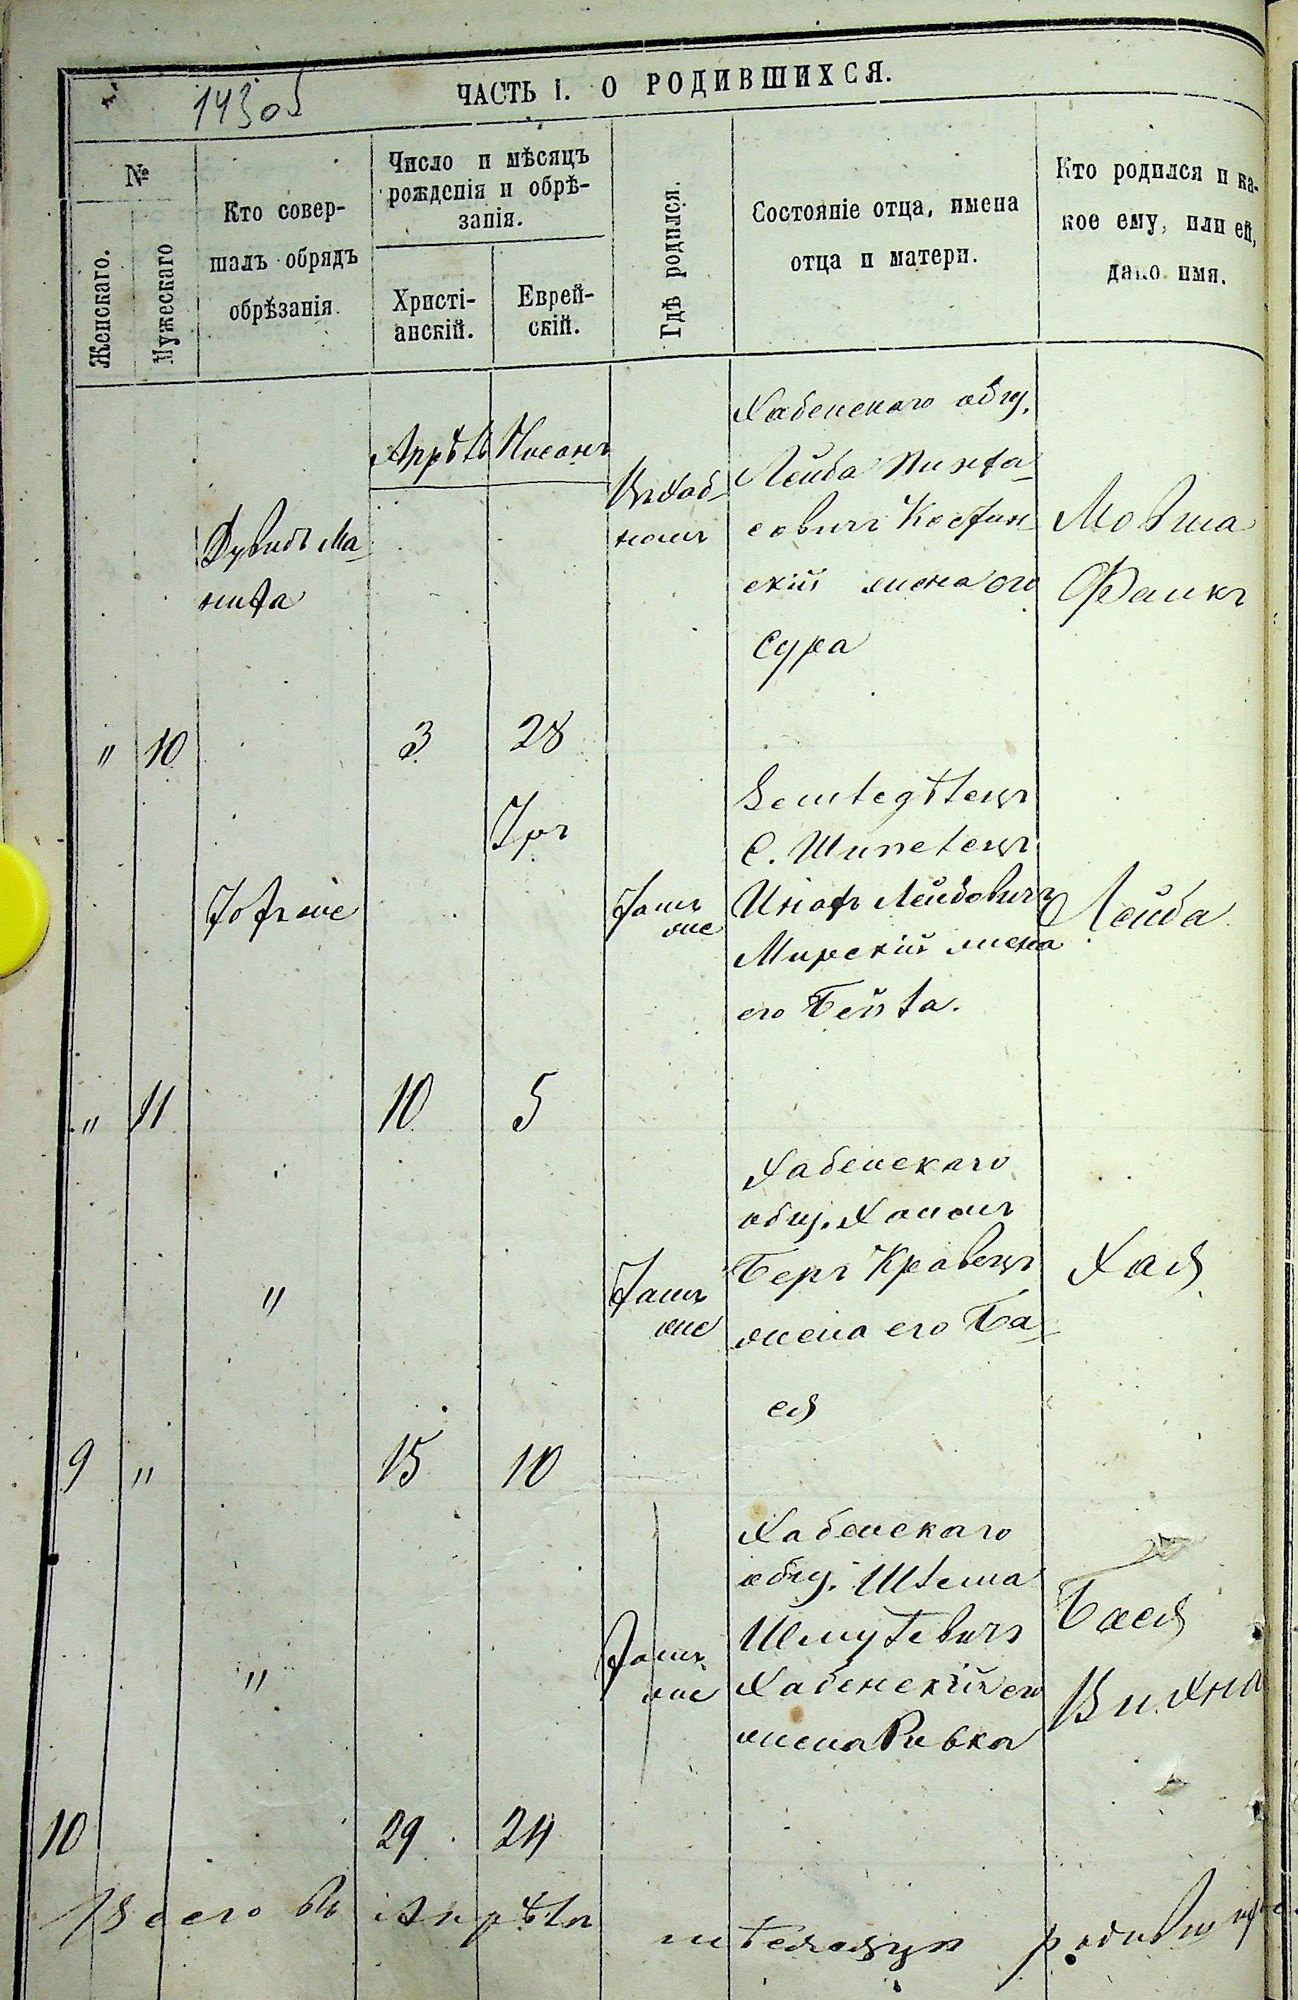 143об
ЧАСТЬ I. О РОДИВШИХСЯ.
№
Женскаго.
Мужескаго
Кто совер-
шалъ обрядъ
обрѣзанія.
Число и мѣсяцъ
рожденія и обрѣ-
занія.
Христі-
анскій.
Еврей-
скій.
Гдѣ родился.
Состояніе отца, имена
отца и матери.
Кто родился и ка-
кое ему, или ей,
дано имя.
Апрѣль
Нисанъ
Дувидъ Ма
нила
Въ Хаб-
номъ
Хабенскаго общ.
Лейба Пинха-
совичъ
скій жена его
Сура
Мовша
Файкъ
" 10 3 28
Іръ
Тотъ же
Тамъ
же
Земледѣлецъ
С. Шипелецъ
Лейбовичъ
Мирскій жена
его Бейла.
Лейба
" 11 10 5
"
Тамъ
же
Хабенскаго
общ. Хаимъ
Беръ Кравецъ
жена его Ба-
ся
Хая
9 " 15 10
"
Тамъ
же
Хабенскаго
общ. Шлема
Шмулевичъ
Хабенскій его
жена Ривка
Бася
Вихна
10 29 24
Всего въ Апрѣлѣ
мѣсяцѣ